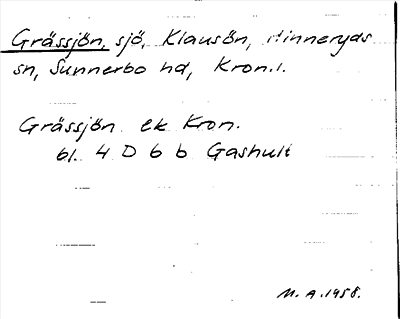 Grässjön, sjö, Klausön, Hinneryds
sn, Sunnerbo hd, Kron.l.
Grässjön ek Kron.
bl. 4 D 6 b Gashult
M. A. 1958.